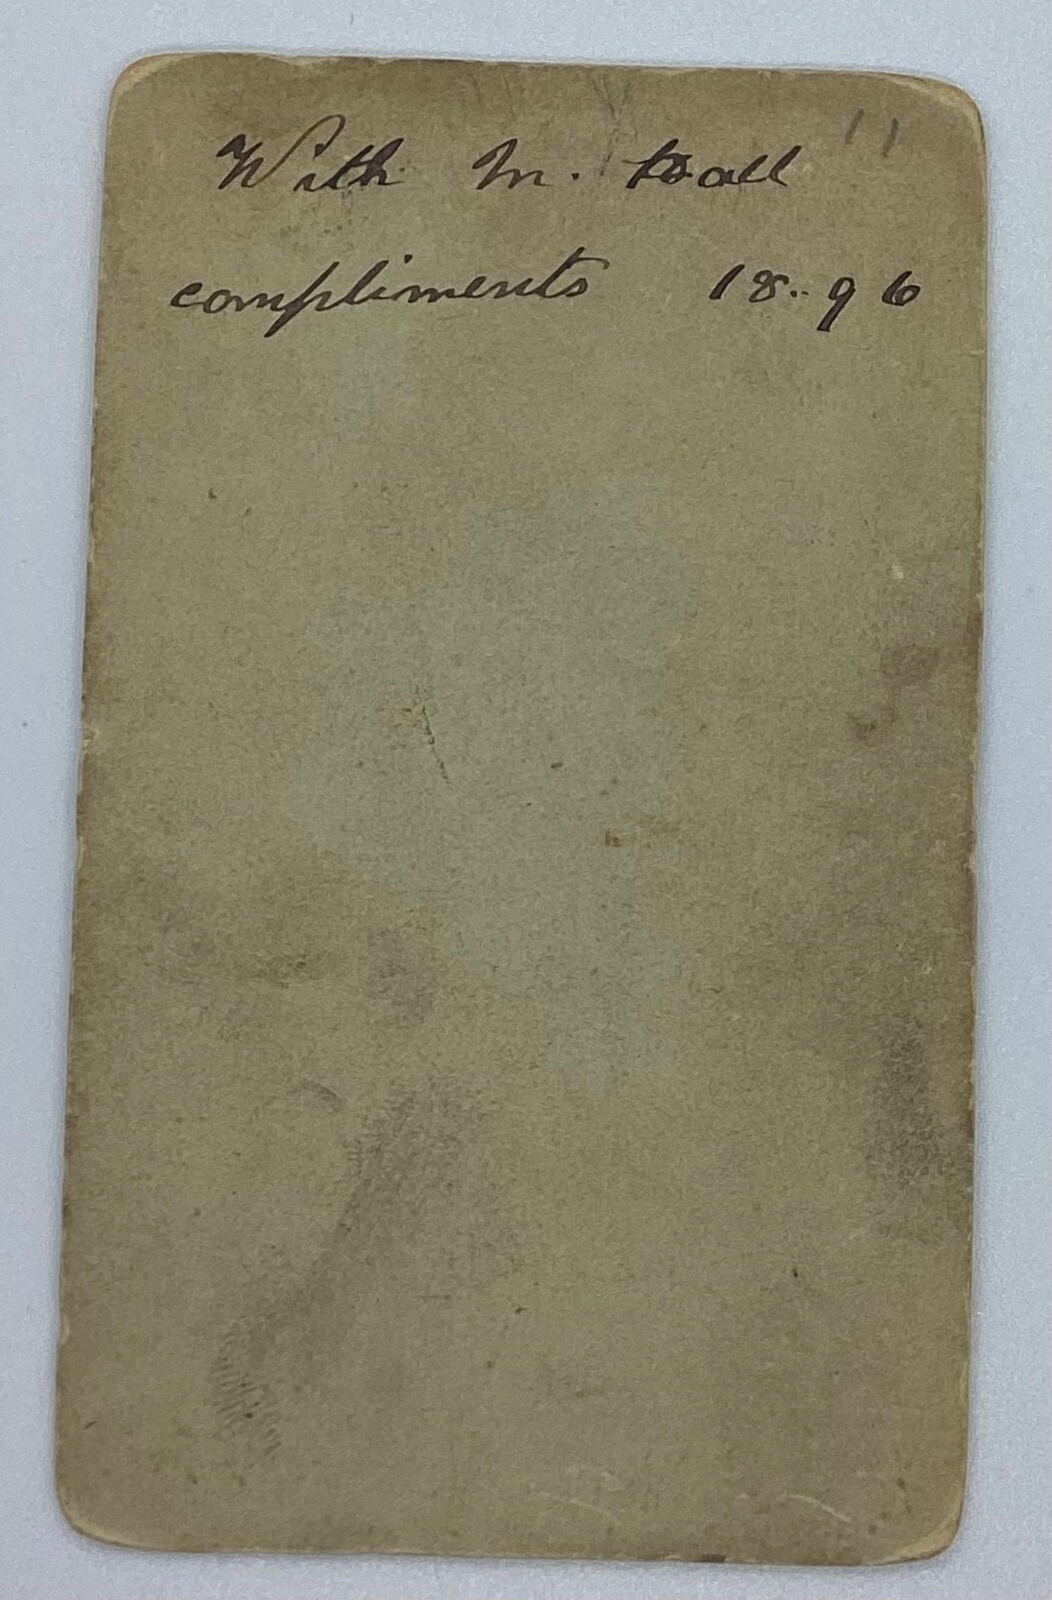 With M. Hall
compliments 18..96
11